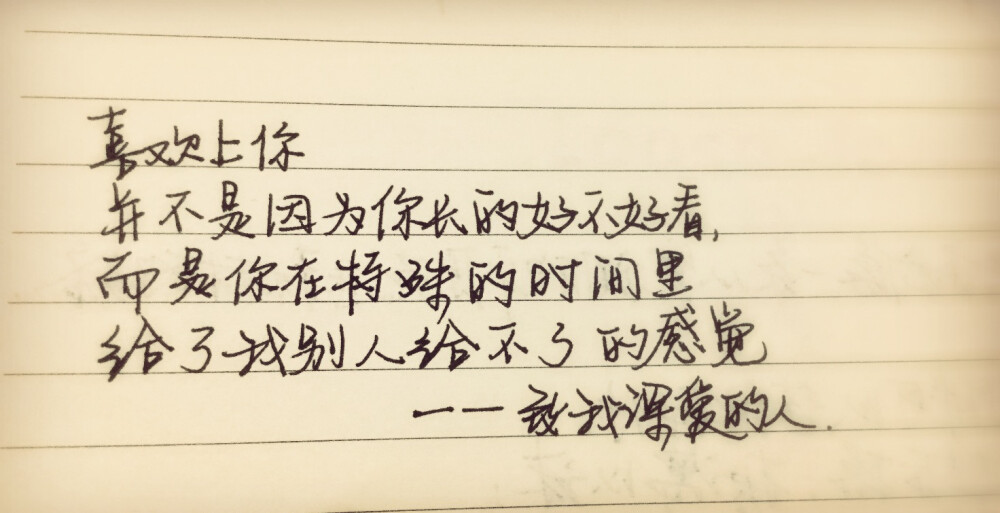 喜欢上你
并不是因为你长的好不好看,
而是你在特殊的时间里
给了我别人给不了的感觉
——致我深爱的人.